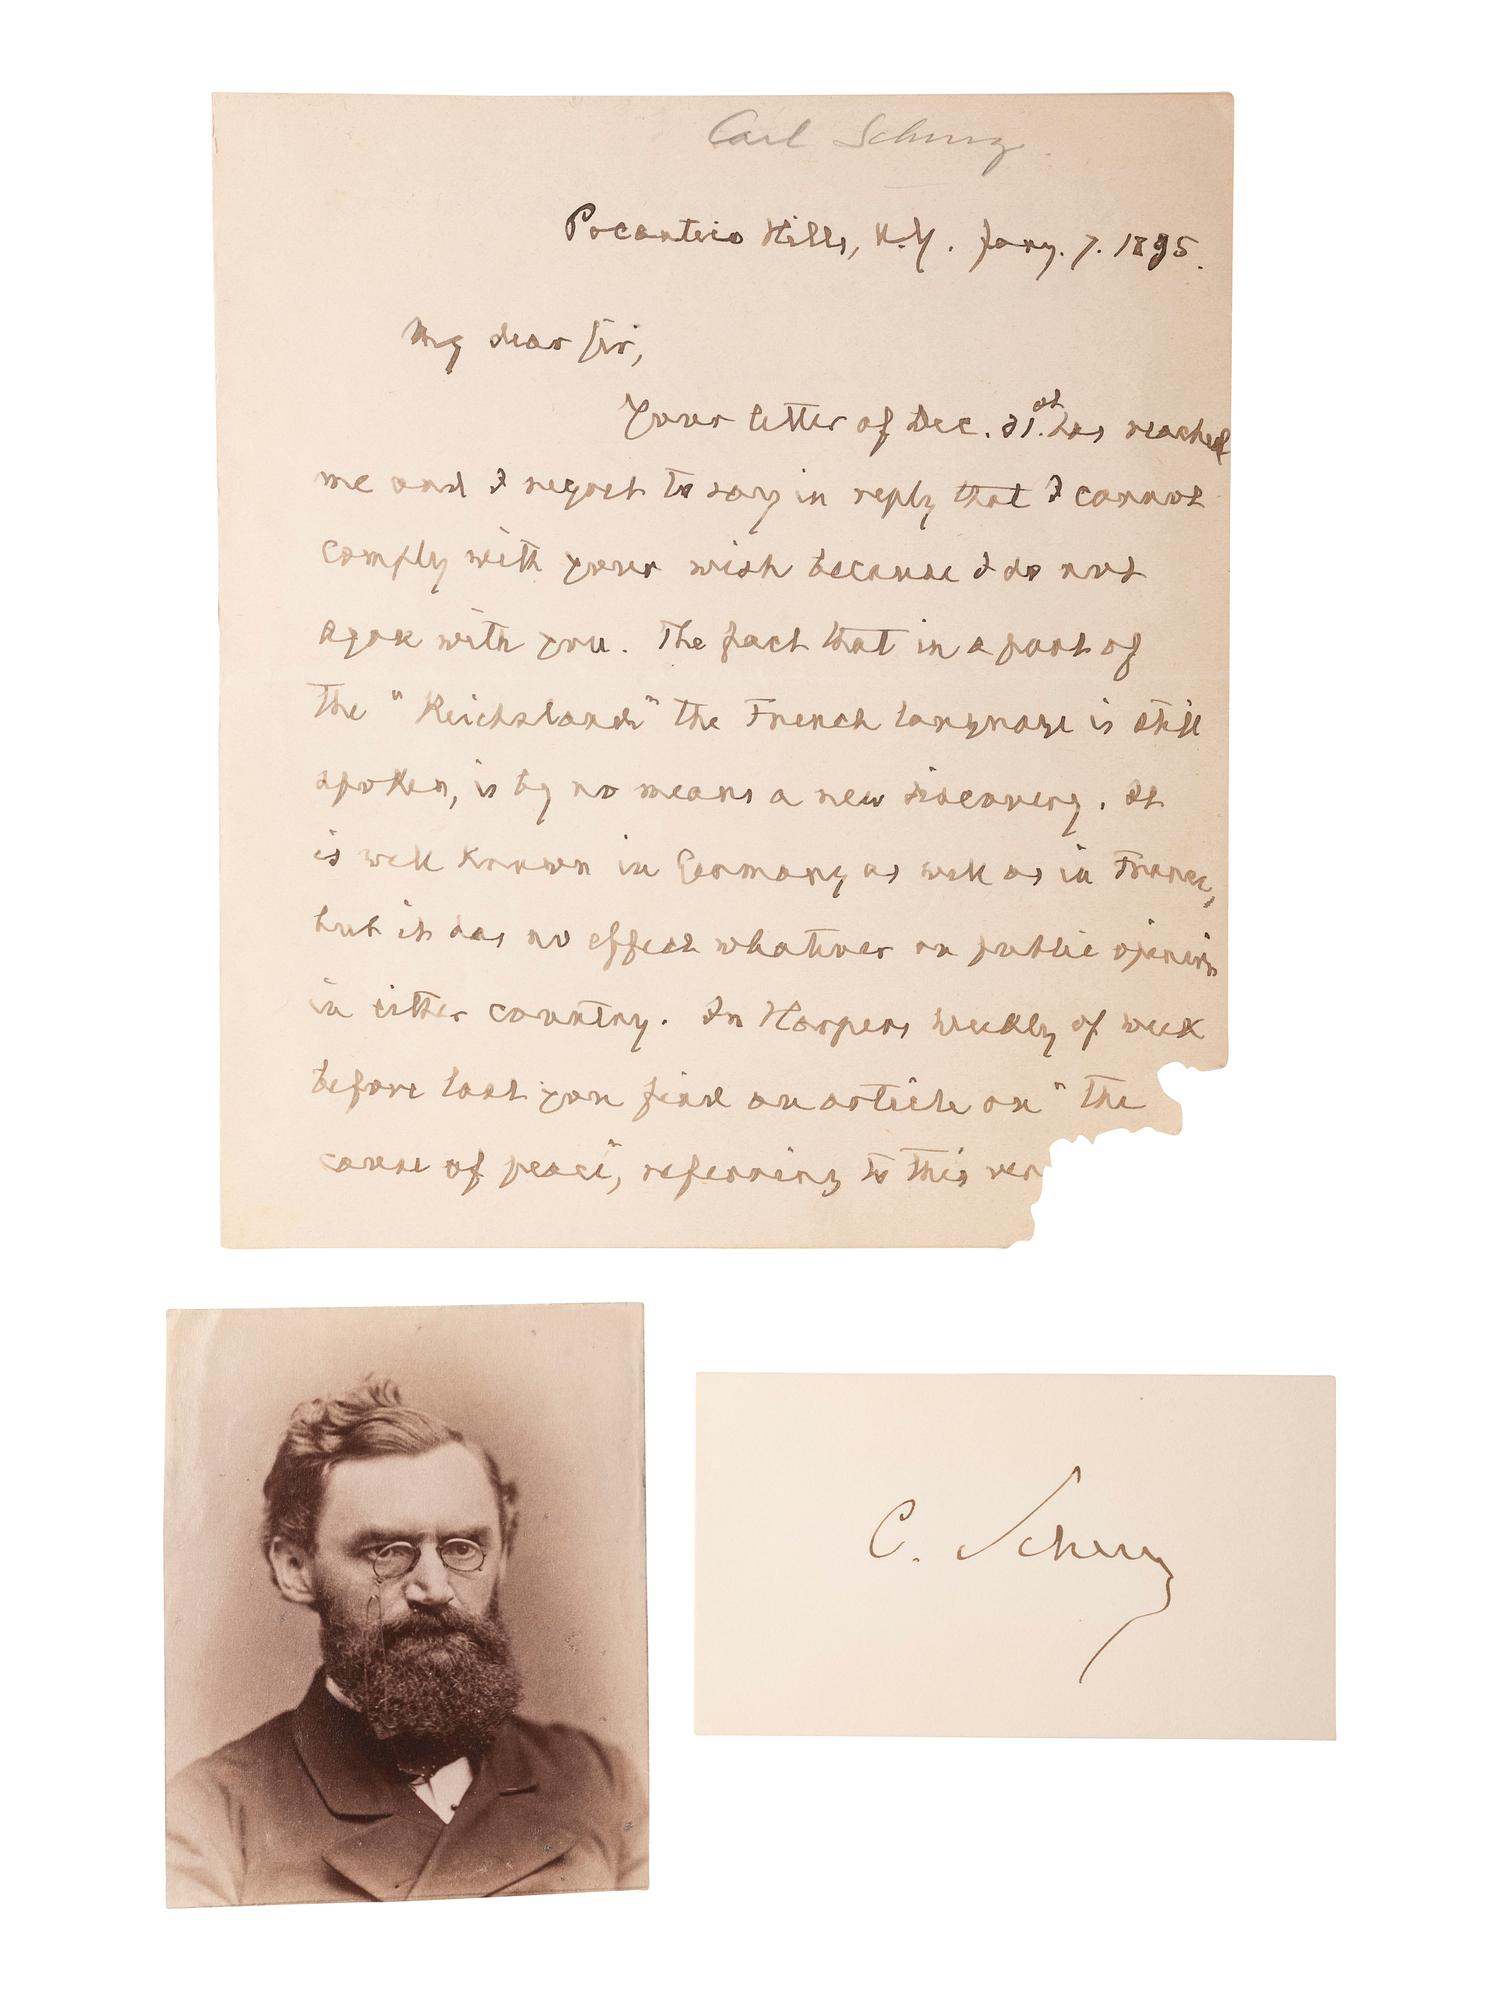 Carl Schurz
Pocantico Hills, N.Y. Jany. 7. 1895.
My dear Sir,
Your letter of Dec. 31st has reached
me and I regret to say in reply that I cannot
comply with your wish because I do not
agree with you. The fact that in a part of
the "Reichsland" the French language is still
spoken, is by no means a new discovery. It
is well known in Germany as well as in France,
but it has no effect whatever on public opinion
in either country. In Harpers Weekly of week
before last you find an article on "the
cause of peace", referring to this ver
C. Schurz